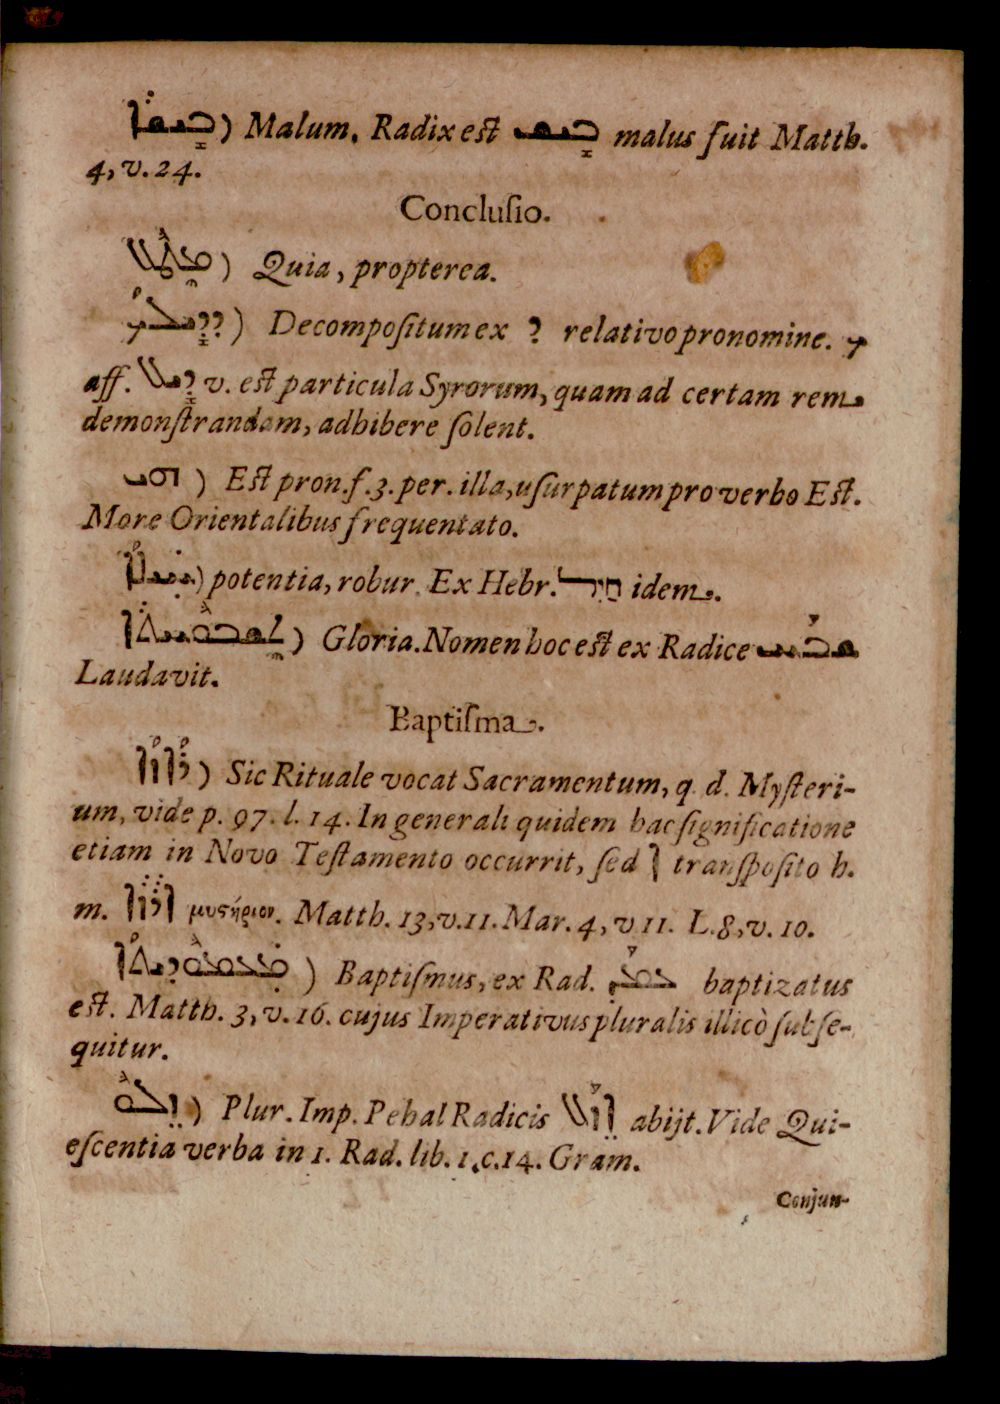 ܒܝܫܐ) Malum. Radix est ܒܐܫ malus fuit Matth.
4, v. 24.
Concluſio.
ܡܛܠ) Quia, propterea.
ܕܕܝܠܟ) Decompoſitum ex ܕ relativo pronomine. ܟ
aff. ܕܝܠ v. eſt particula Syrorum, quam ad certam rem
demonſtrandam, adhibere ſolent.
ܗܝ) Eſt pron. f. 3. per. illa, uſurpatum pro verbo Eſt.
More Orientalibus frequentato.
ܚܝܠܐ) potentia, robur. Ex Hebr. חַיִל idem.
ܬܫܒܘܚܬܐ) Gloria. Nomen hoc eſt ex Radice ܫܒܚ
Laudavit.
Baptiſma.
ܪܐܙܐ) Sic Rituale vocat Sacramentum, q. d. Myſteri-
um, vide p. 97. l. 14. In generali quidem hac ſignificatione
etiam in Novo Teſtamento occurrit, ſed ܐ tranſpoſito h.
m. ܐܪܙܐ μυστήριον. Matth. 13, v. 11. Mar. 4, v 11. L. 8, v. 10.
ܡܥܡܘܕܝܬܐ) Baptiſmus, ex Rad. ܥܡܕ baptizatus
eſt. Matth. 3, v. 16. cujus Imperativus pluralis illicò ſubſe-
quitur.
ܙܠܘ) Plur. Imp. Pehal Radicis ܐܙܠ abijt. Vide Qui-
eſcentia verba in 1. Rad. lib. 1. c. 14. Gram.
Conjun-